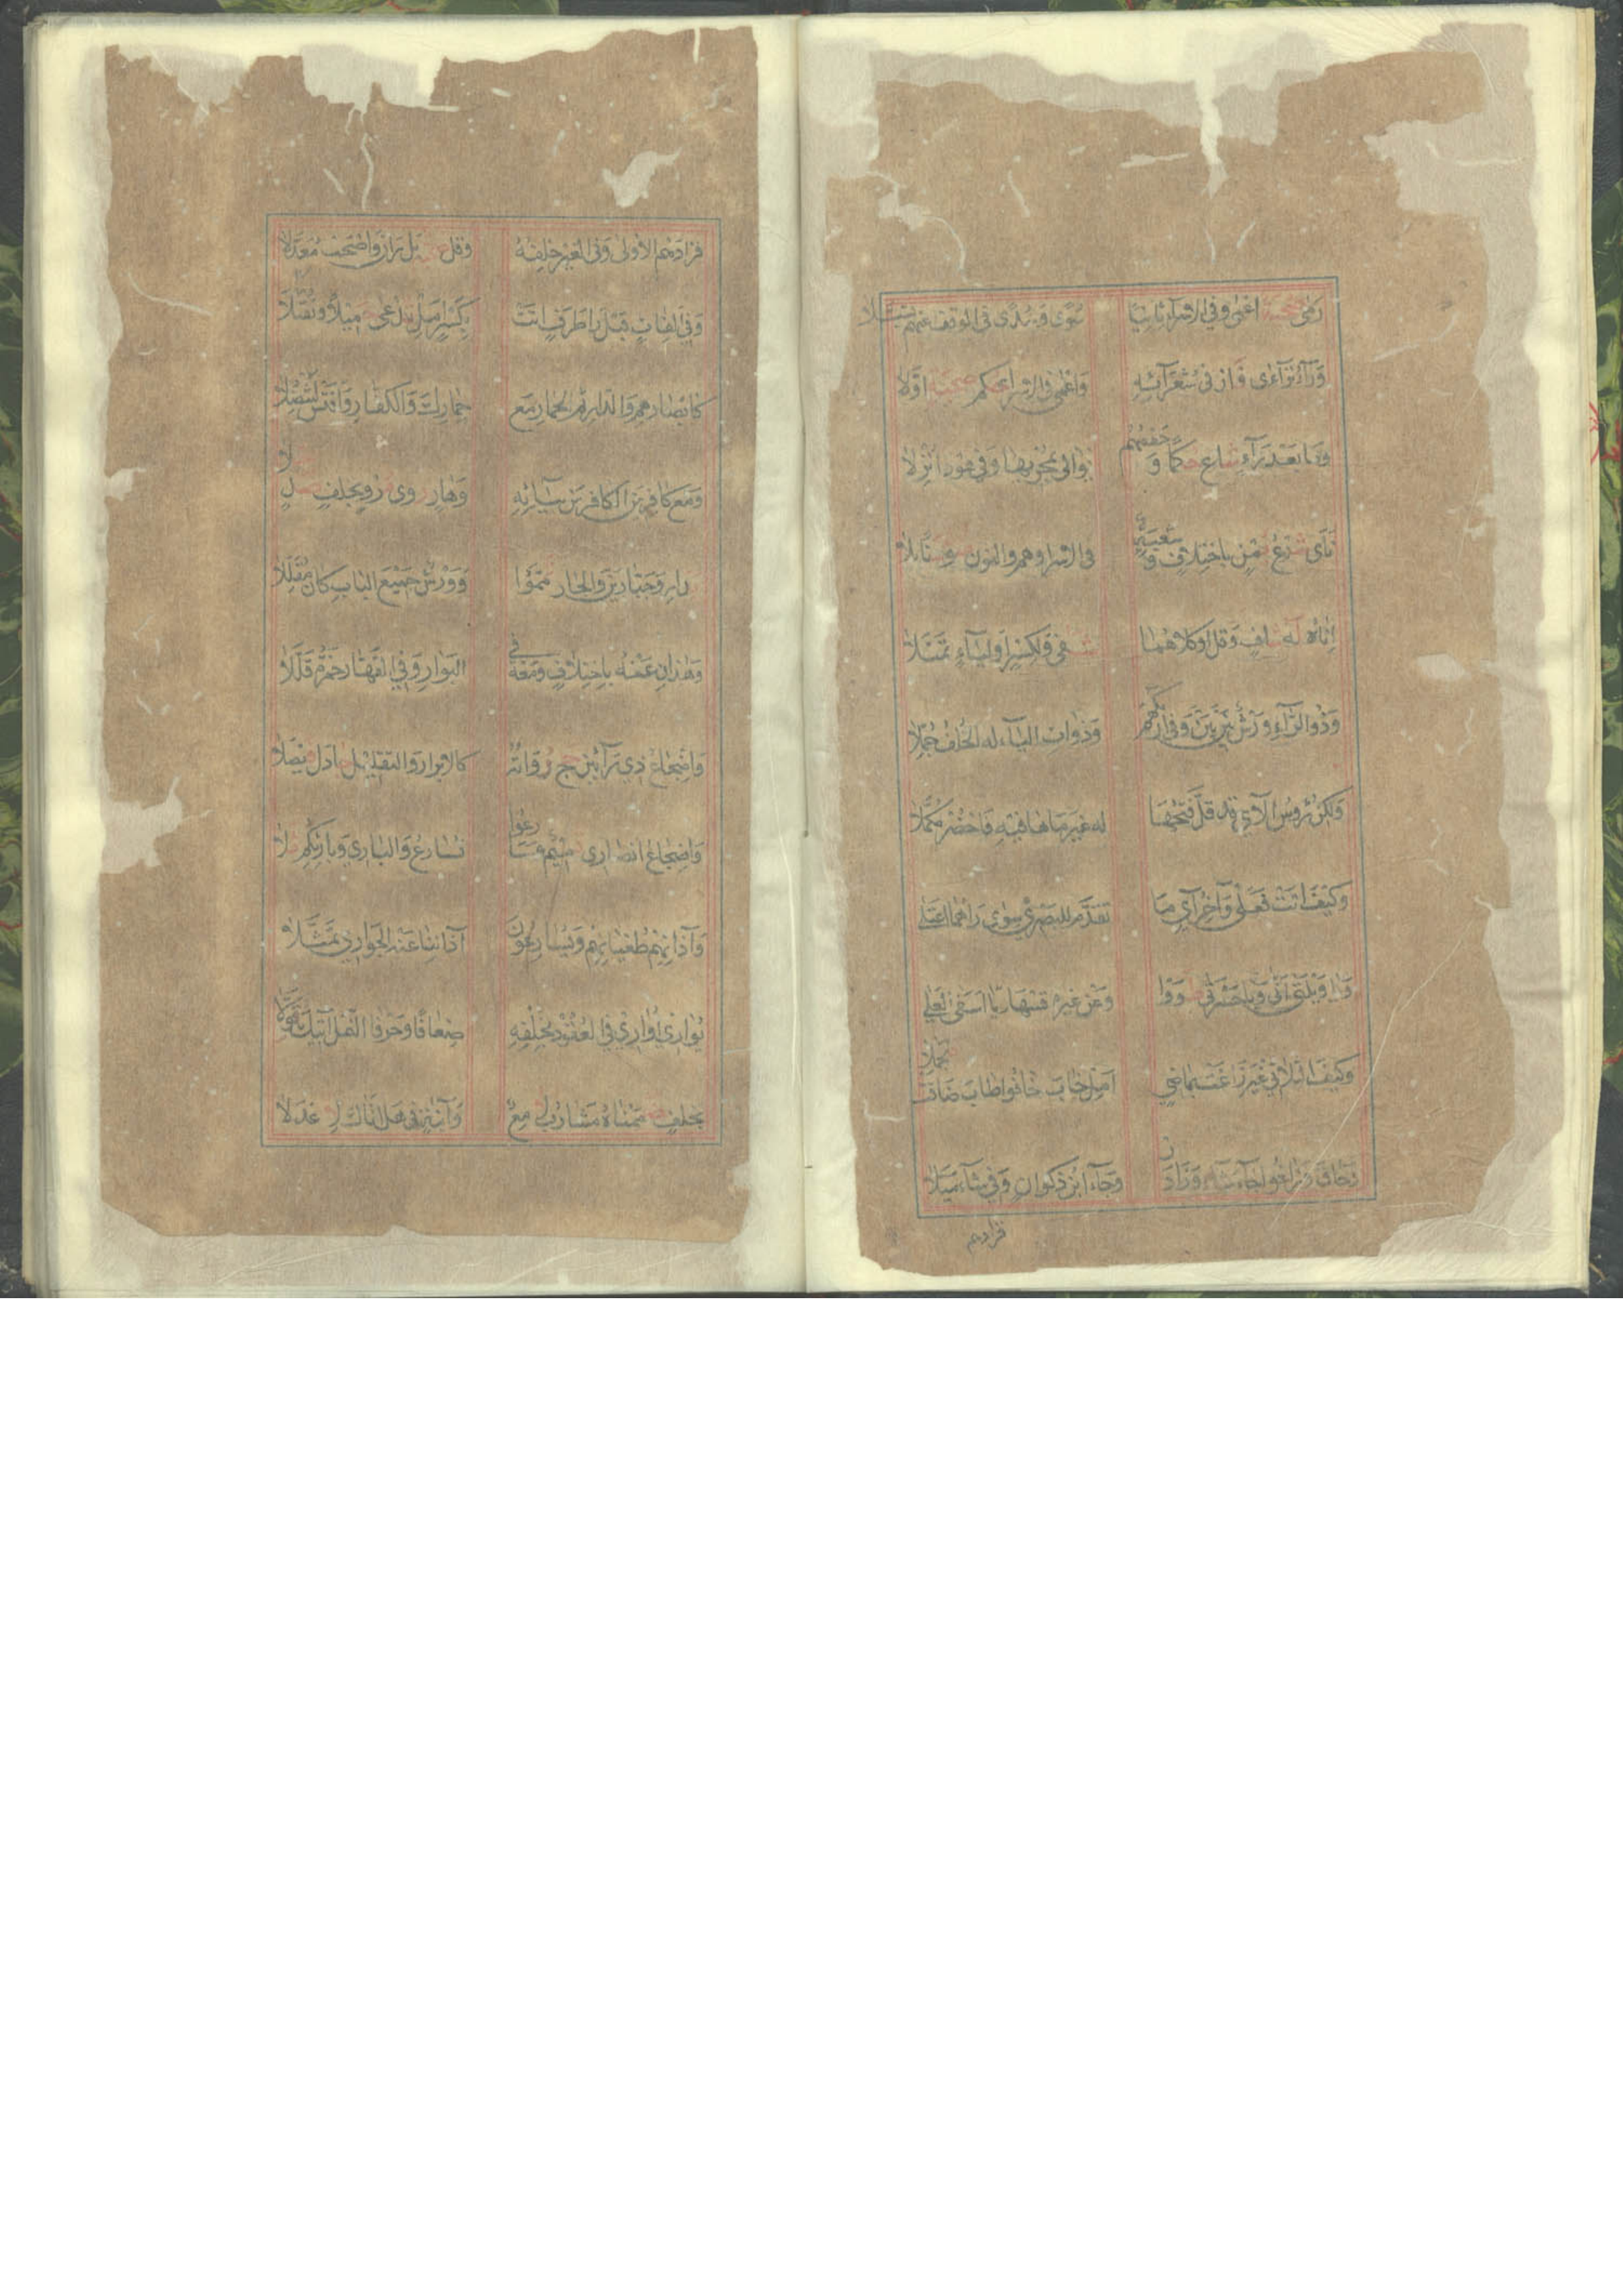 رمى صحبة اعمى وفي الاسراء ثانيا سوى وسدى في الوقف عنهم تسبلا
وراء تراءى فاز في شعرآئه واعمى في الاسرا حكم صحبة اولا
وما بعد رآء شاع حكما وحفصهم يوالي بمجريها وفي هود انزلا
نأى شرع يمن باختلاف وشعبة في الاسرا وهم والنون ضوء سنا تلا
اناه له شاف وقل او كلاهما شفى ولكسر او لياء تميلا
وذو الرآء ورش بين بين وفي اراكهم وذوات اليآء له الخلف جملا
ولكن رءوس الآي قد قل فتحها له غير ما ها فيه فاحضر مكملا
وكيف اتت فعلى وآخر آي ما تقدم للبصري سوى راهما اعتلى
ويا ويلتى انى ويا حسرتى طووا وعن غيره قسها ويا اسفى العلى
وكيف الثلاثي غير زاغت بماضي امل خاب خافوا طاب ضاقت فتجملا
وحاق وزاغوا جاء شاء وزاد فز وجاء ابن ذكوان وفي شاء ميلا
فزادهم
فزادهم الاولى وفي الغير خلفه وقل صحبة بل ران واصحب معدلا
وفي الفات قبل را طرف اتت بكسر امل تدعى حميدا وتقبلا
كابصارهم والدار ثم الحمار مع حمارك والكفار واقتس لتنضلا
ومع كافرين الكافرين بيآئه وهار روى مرو بخلف صد حلا
بدار وجبارين والجار تمموا وورش جميع الباب كان مقللا
وهذان عنه باختلاف ومعه في البوار وفي القهار حمزة قللا
واضجاع ذي رآئين حج رواته كالابرار والتقليل جادل فيصلا
واضجاع انصاري تميم وسارعوا نسارع والباري وبارئكم تلا
وآذانهم طغيانهم ويسارعون آذاننا عنه الجواري تمثلا
يواري اواري في العقود بخلفه ضعافا وحرفا النمل آتيك قولا
بخلف ضممناه مشارب لامع وآنية في هل اتاك لاعدلا